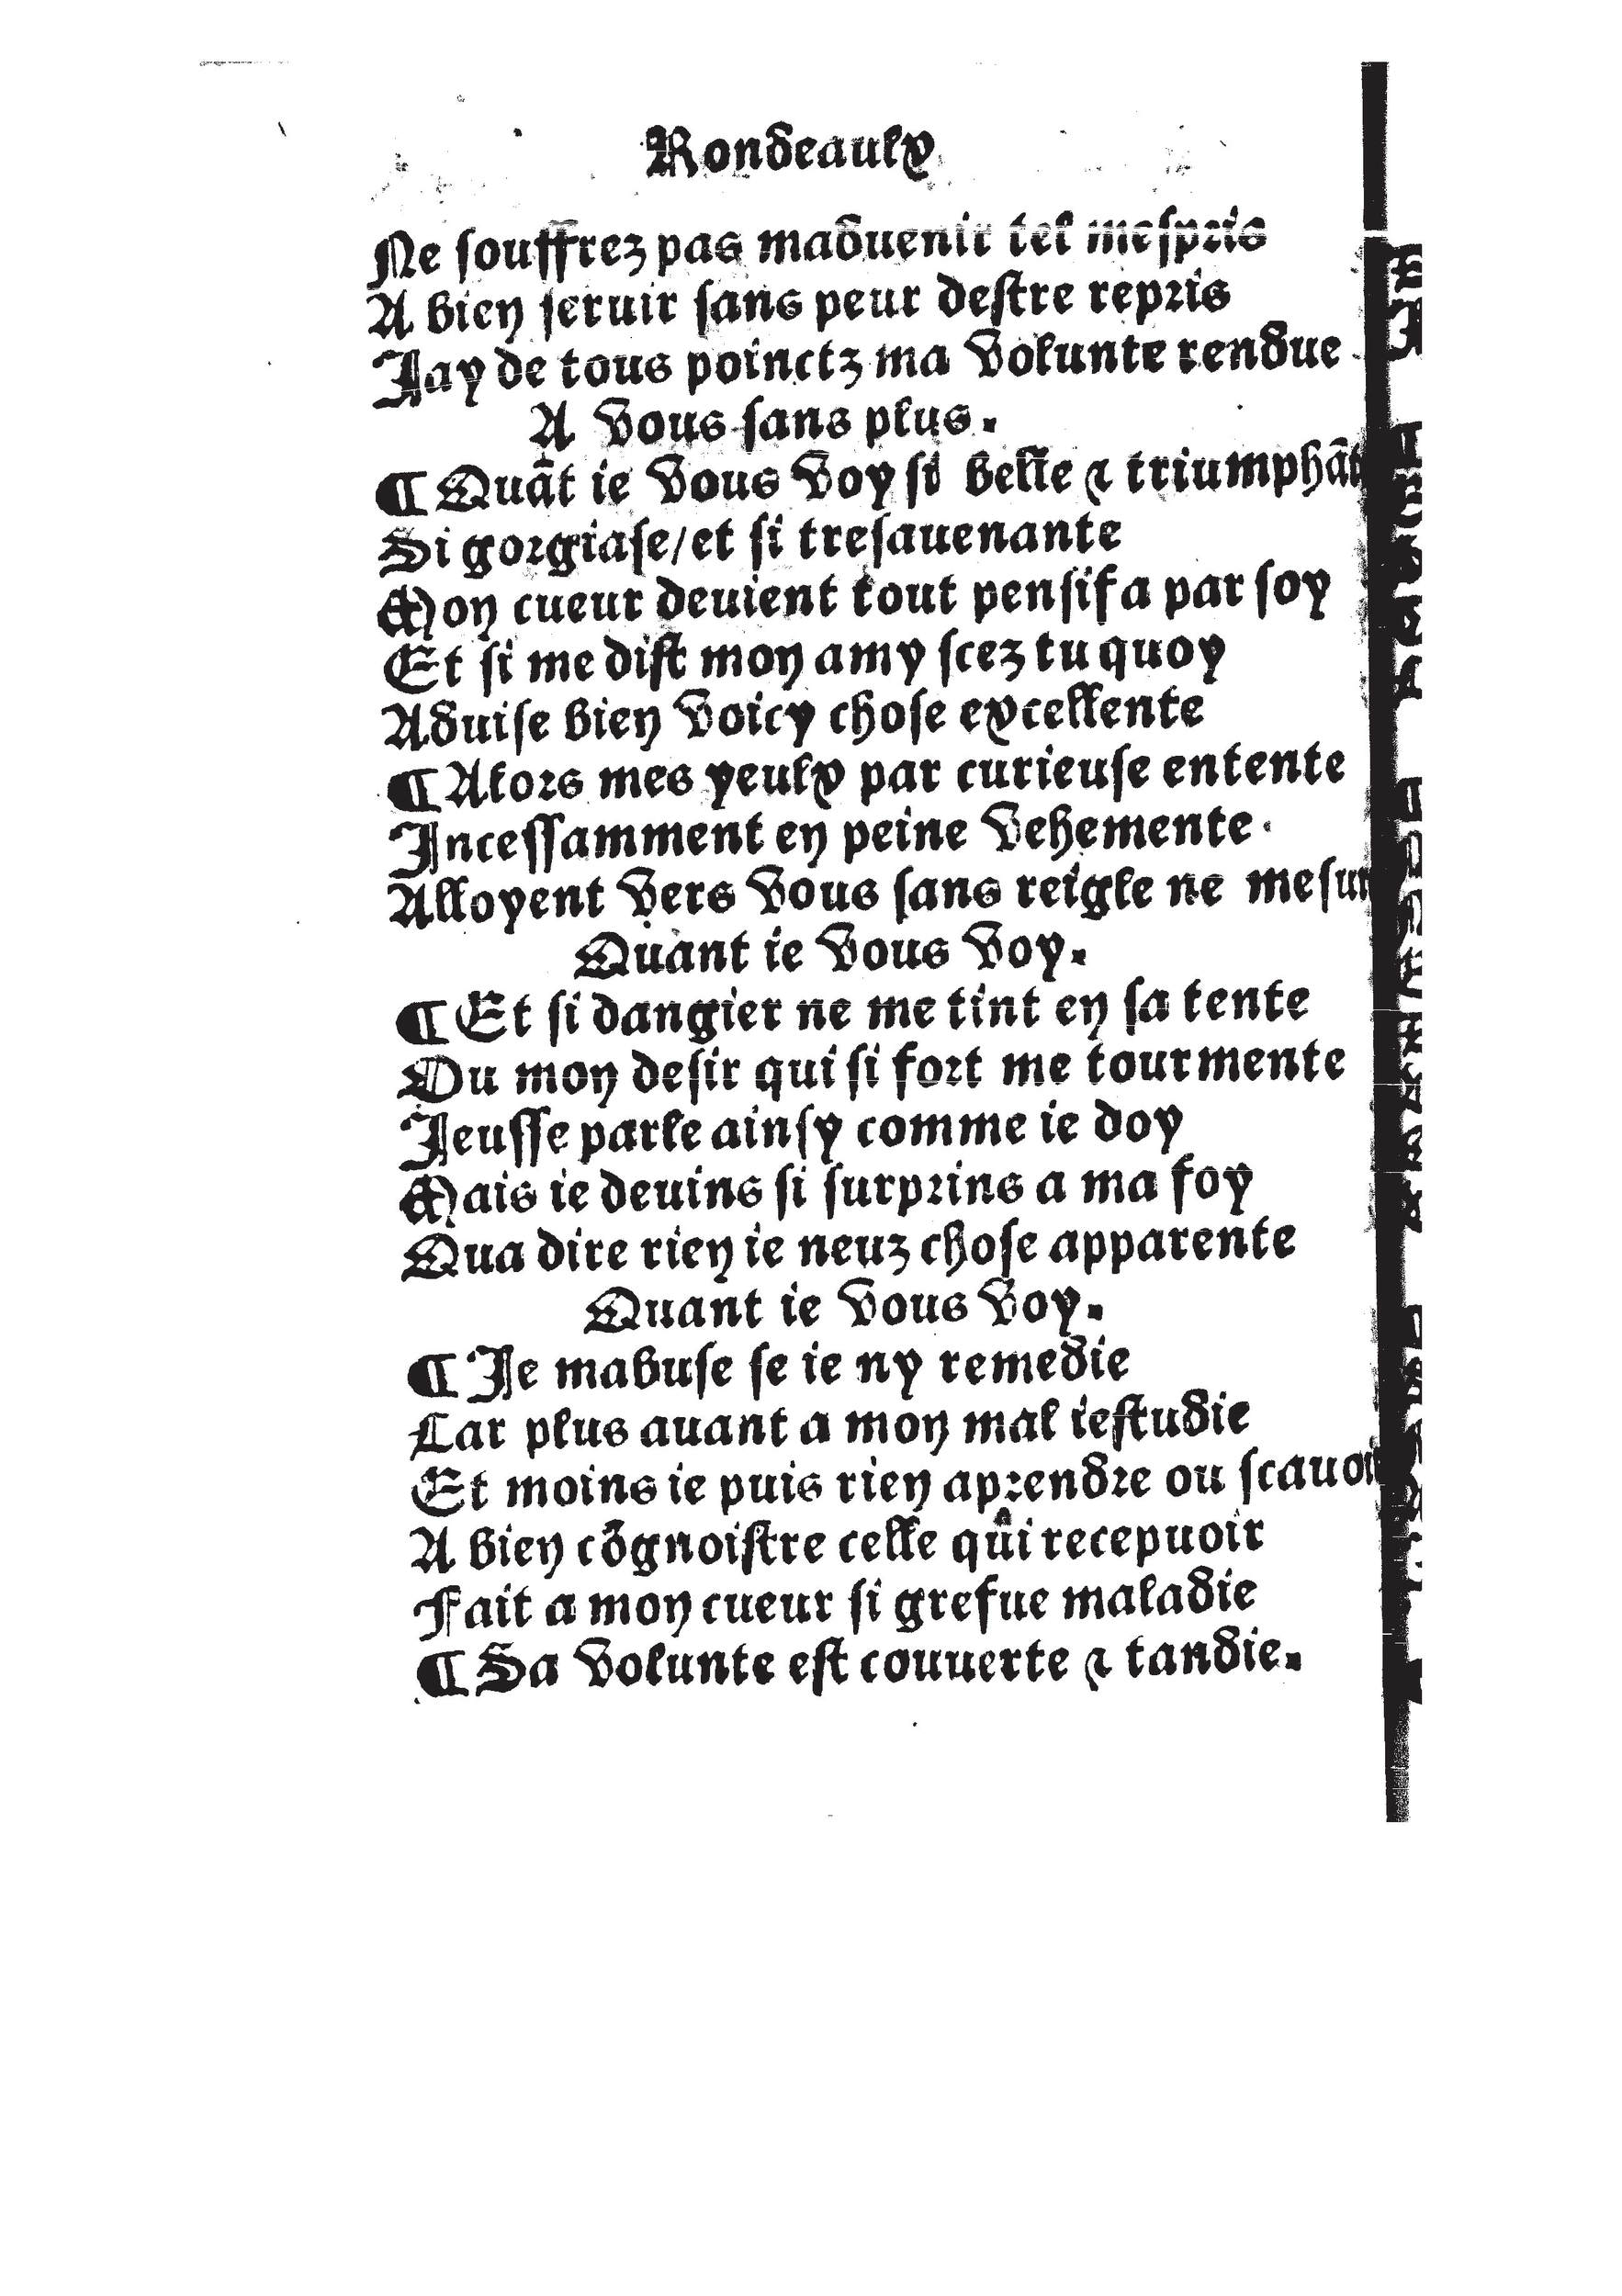 Rondeaulx
Ne souffrez pas maduenir tel mespris
A bien seruir sans peur destre repris
Jay de tous poinctz ma volunte rendue
A vous sans plus.
¶ Quãt ie vous voy si belle ⁊ triumphãt
Si gorgiase/et si tresauenante
Mon cueur deuient tout pensif a par soy
Et si me dist mon amy scez tu quoy
Aduise bien voicy chose excellente
¶ Alors mes yeulx par curieuse entente
Incessamment en peine vehemente.
Alloyent vers vous sans reigle ne mesur
Quant ie vous voy.
¶ Et si dangier ne me tint en sa tente
Ou mon desir qui si fort me tourmente
Jeusse parle ainsy comme ie doy
Mais ie deuins si surprins a ma foy
Qua dire rien ie neuz chose apparente
Quant ie vous voy.
¶ Je mabuse se ie ny remedie
Car plus auant a mon mal iestudie
Et moins ie puis rien aprendre ou scauoi
A bien cõgnoistre celle qui recepuoir
Fait a mon cueur si grefue maladie
¶ Sa volunte est couuerte ⁊ tandie.